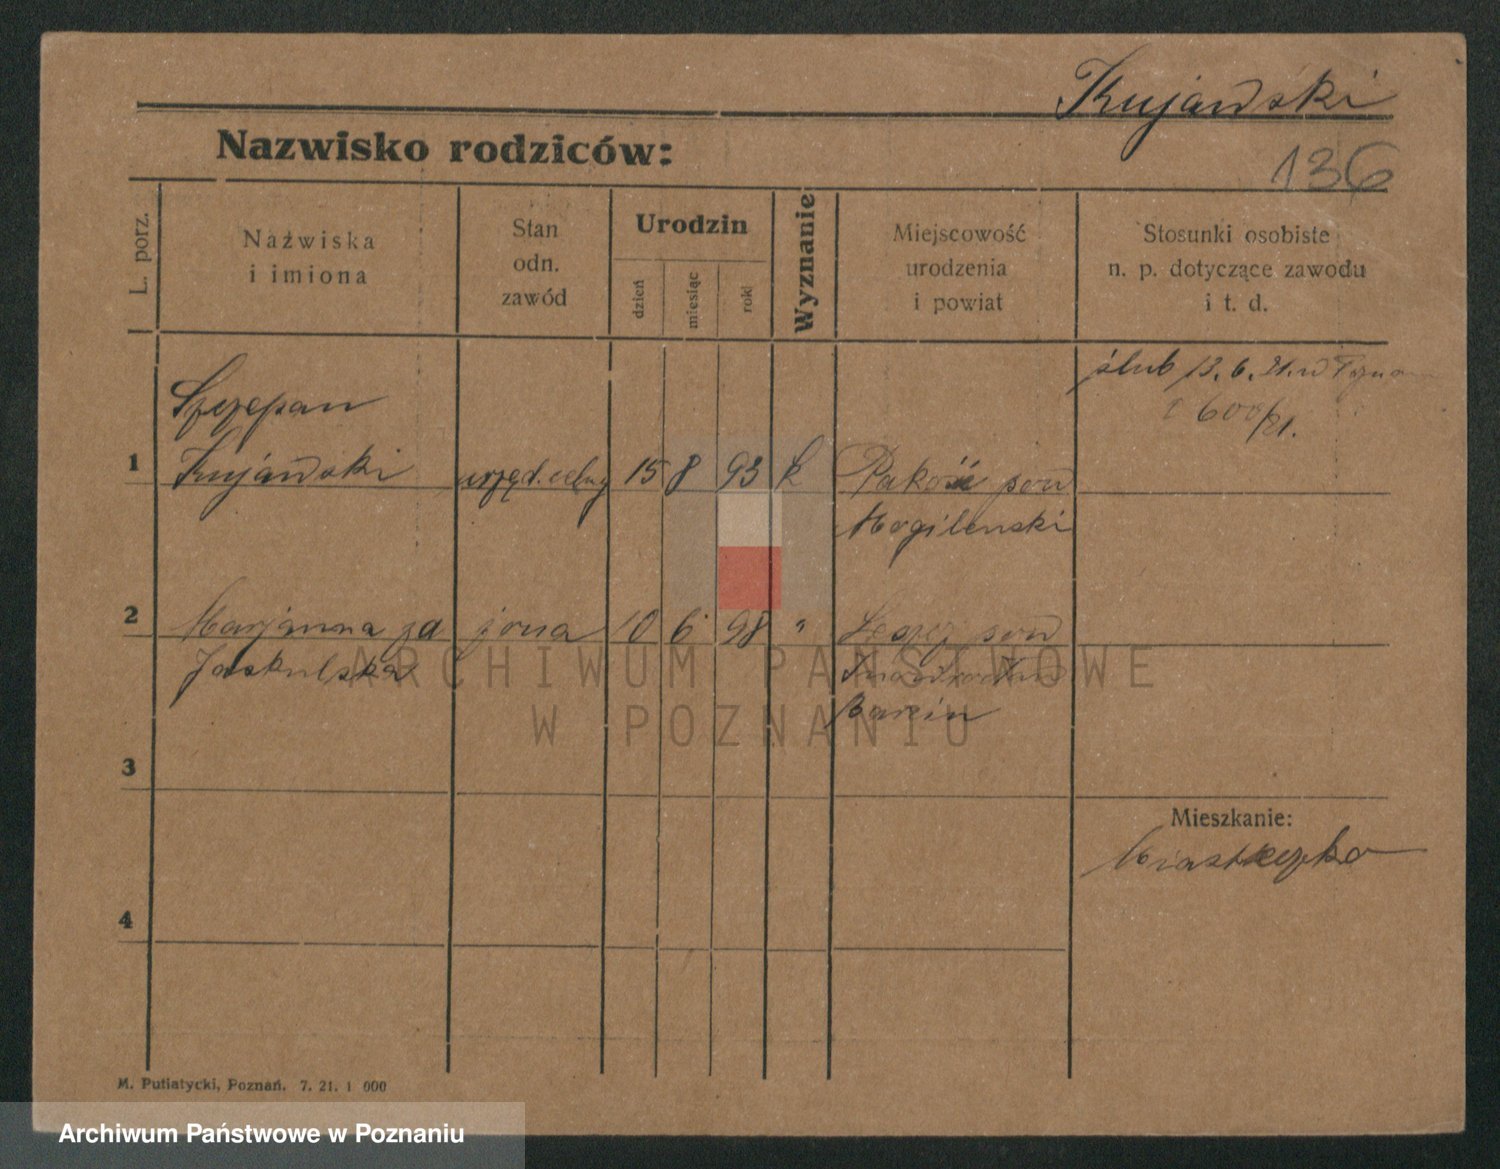 Kujawski
Nazwisko rodziców:
136
L. porz.
Nazwiska
i imiona
Stan
odn.
zawód
Urodzin
dzień
miesiąc
rok
Wyznanie
Miejscowość
urodzenia
i powiat
Stosunki osobiste
n. p. dotyczące zawodu
i t. d.
ślub 13. 6. 21. w
600/21.
Szczepan
1 Kujawski urzęd. celny 15 8 93 k Pakość pow
Mogilenski
2 Marjanna zd żona 10 6 98 " pow
Jaskulska
Barcin
3
Mieszkanie:
Miasteczko
4
M. Putiatycki, Poznań. 7. 21. 1 000
ARCHIWUM PAŃSTWOWE
W POZNANIU
Archiwum Państwowe w Poznaniu